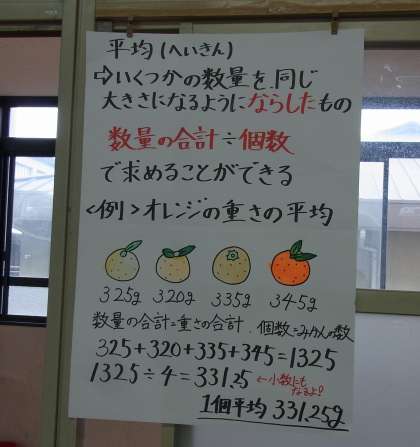 平均(へいきん)
⇨いくつかの数量を、同じ
大きさになるようにならしたもの
数量の合計÷個数
で求めることができる
<例>オレンジの重さの平均
325g 320g 335g 345g
数量の合計=重さの合計、個数=みかんの数
325+320+335+345=1325
1325÷4=331.25 ←小数にもなるよ!
1個平均 331.25g